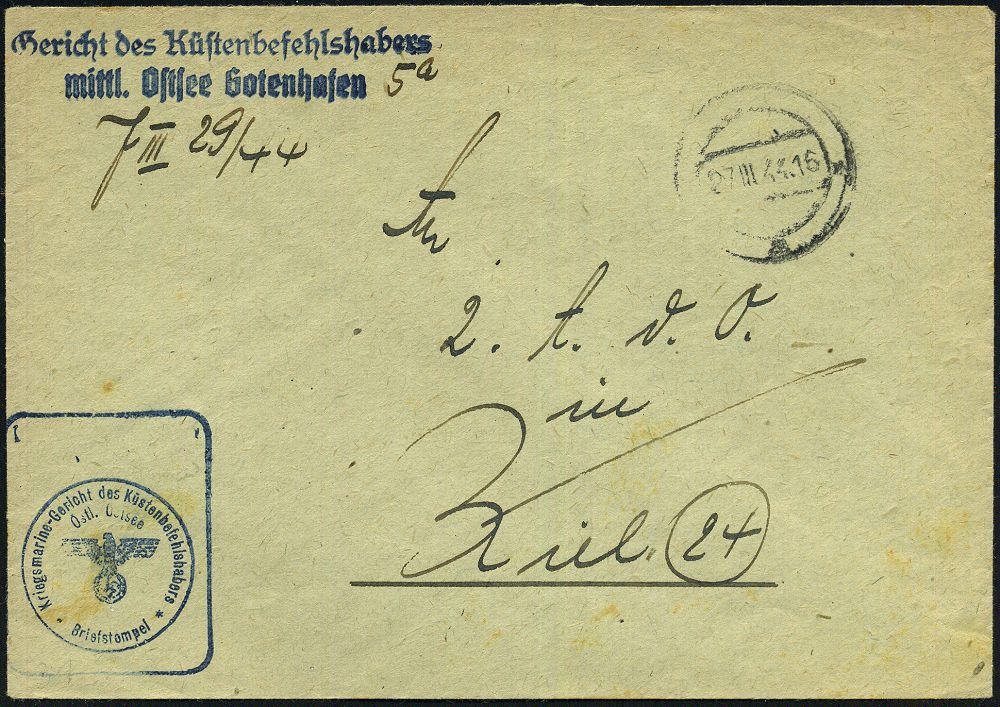 Gericht des Küstenbefehlshabers
mittl. Ostsee Gotenhafen 5a
J III 29/44
27.III.44.16
An
2. A. d. O.
in
Kiel 24
Kriegsmarine-Gericht des Küstenbefehlshabers
Östl. Ostsee
* Briefstempel *